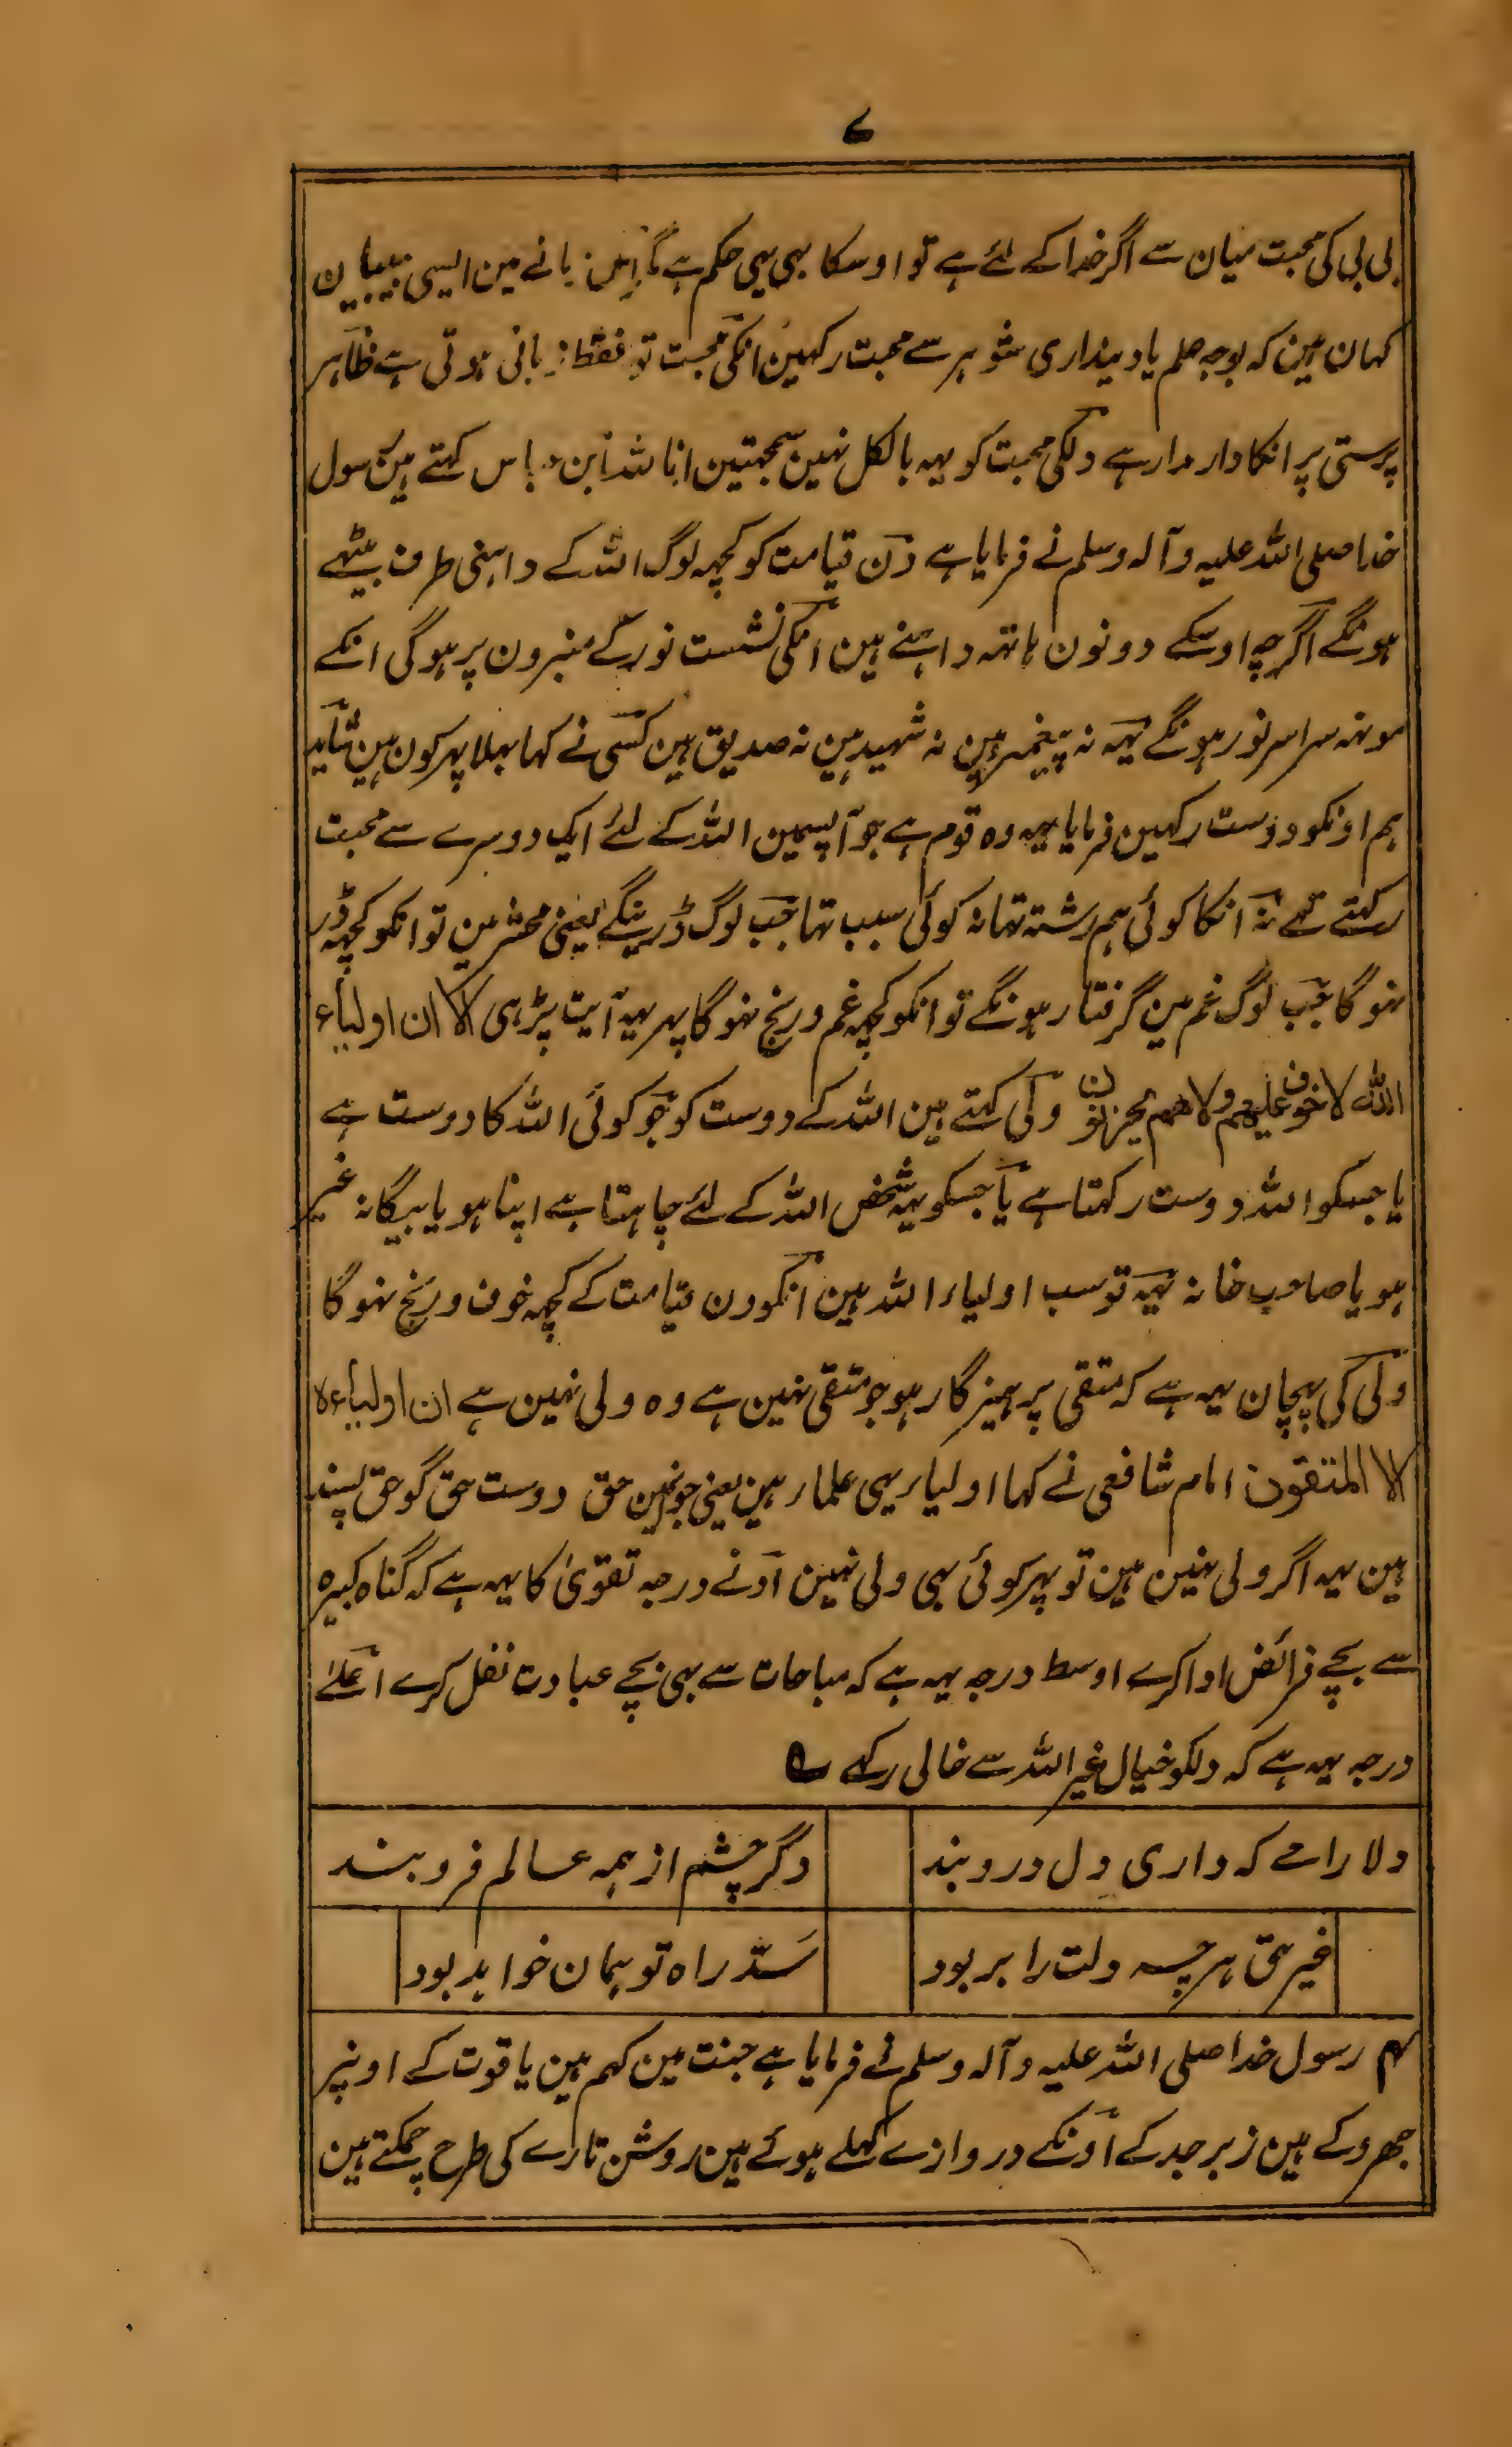 ۷
بی بی کی محبت میان سے اگر خدا کے لئے ہے تو اوسکا بہی یہی حکم ہے مگر اس زمانے مین ایسی بیبیان
کہان ہین کہ بوجہ علم یا دینداری شوہر سے محبت رکہین انکی محبت تو فقط زبانی ہوتی ہے ظاہر
پرستی پر انکا دار مدار ہے دلکی محبت کو یہہ بالکل نہین سمجہتین انا للہ ابن عباس کہتے ہین رسول
خدا صلی اللہ علیہ وآلہ وسلم نے فرمایا ہے دن قیامت کو کچہہ لوگ اللہ کے داہنی طرف بیٹہے
ہونگے اگرچہ اوسکے دونون ہاتہہ داہنے ہین انکی نشست نور کے منبرون پر ہوگی انکے
مونہہ سراسر نور ہونگے یہہ نہ پیغمبر ہین نہ شہید ہین نہ صدیق ہین کسی نے کہا بہلا پہر کون ہین شاید
ہم اونکو دوست رکہین فرمایا یہہ وہ قوم ہے جو آپسمین اللہ کے لئے ایک دوسرے سے محبت
رکہتے تہے نہ انکا کوئی ہم رشتہ تہا نہ کوئی سبب تہا جب لوگ ڈرینگے یعنی محشر مین تو انکو کچہہ ڈر
نہوگا جب لوگ غم مین گرفتار ہونگے تو انکو کچہہ غم و رنج نہوگا پہر یہہ آیت پڑہی الا ان اولیاء
اللہ لا خوف علیهم ولا هم یحزنون ولی کہتے ہین اللہ کے دوست کو جو کوئی اللہ کا دوست ہے
یا جسکو اللہ دوست رکہتا ہے یا جسکو یہہ شخص اللہ کے لئے چاہتا ہے اپنا ہو یا بیگانہ غیر
ہو یا صاحب خانہ یہہ تو سب اولیاء اللہ ہین انکو دن قیامت کے کچہہ خوف و رنج نہوگا
ولی کی پہچان یہہ ہے کہ متقی پرہیزگار ہو جو متقی نہین ہے وہ ولی نہین ہے ان اولیاءہ
الا المتقون امام شافعی نے کہا اولیاء یہی علماء ہین یعنی جو دین حق دوست حق گو حق پسند
ہین یہہ اگر ولی نہین ہین تو پہر کوئی بہی ولی نہین ادنے درجہ تقویٰ کا یہہ ہے کہ گناہ کبیرہ
سے بچے فرائض ادا کرے اوسط درجہ یہہ ہے کہ مباحات سے بہی بچے عبادت نفل کرے اعلے
درجہ یہہ ہے کہ دلکو خیال غیر اللہ سے خالی رکہے ؎
دلارامے کہ داری دل درو بند دگر چشم از ہمہ عالم فرو بند
غیر حق ہرچہ دلت را بربود سدّ راہ تو ہمان خواہد بود
۴م رسول خدا صلی اللہ علیہ وآلہ وسلم نے فرمایا ہے جنت مین کہم ہین یاقوت کے اونپر
جھروکے ہین زبرجد کے اونکے دروازے کہلے ہوئے ہین روشن تارے کی طرح چمکتے ہین